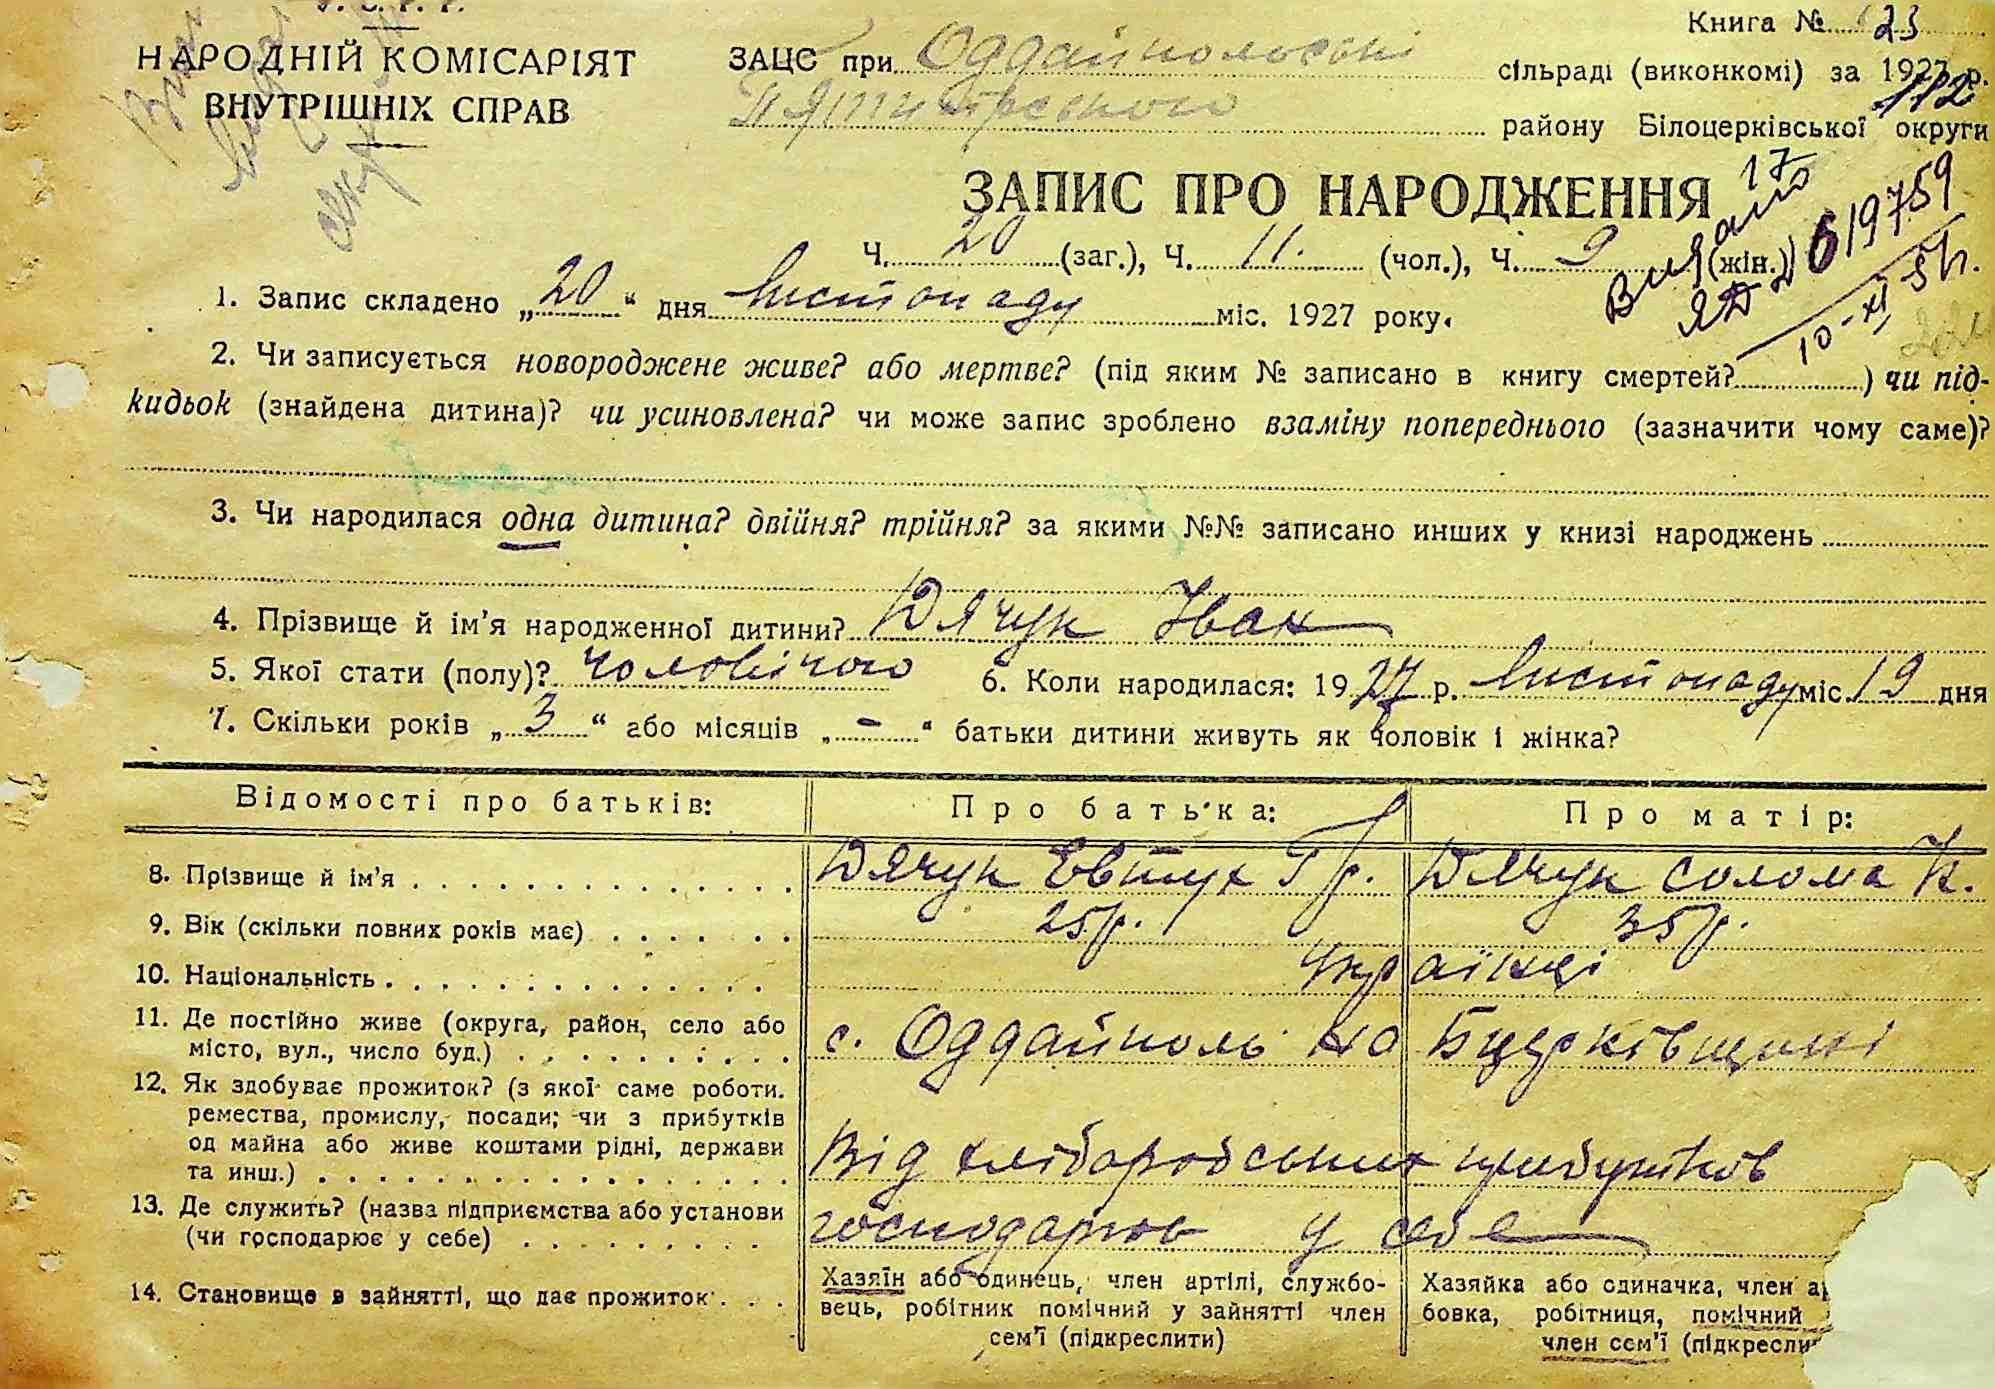 У. С. Р. Р.
Книга № 23
НАРОДНІЙ КОМІСАРІЯТ
ВНУТРІШНІХ СПРАВ
ЗАЦС при Оддайпольські сільраді (виконкомі) за 1927 р.
112
Пятигірського району Білоцерківської округи
ЗАПИС ПРО НАРОДЖЕННЯ
17
Видано
ЯЮ 619759
10-XI 51 г.
Ч. 20 (заг.), Ч. 11. (чол.), Ч. 9 (жін.)
1. Запис складено „20“ дня листопаду міс. 1927 року.
2. Чи записується новороджене живе? або мертве? (під яким № записано в книгу смертей? ) чи під-
кидьок (знайдена дитина)? чи усиновлена? чи може запис зроблено взаміну попереднього (зазначити чому саме)?
3. Чи народилася одна дитина? двійня? трійня? за якими №№ записано инших у книзі народжень
4. Прізвище й ім'я народженної дитини? Дячук Іван
5. Якої стати (полу)? чоловічого 6. Коли народилася: 1927 р. листопаду міс. 19 дня
7. Скільки років „3“ або місяців „-“ батьки дитини живуть як чоловік і жінка?
Відомості про батьків: Про батька: Про матір:
8. Прізвище й ім'я Дячук Евтух Гр. Дячук Солома К.
9. Вік (скільки повних років має) 25 р. 35 р.
10. Національність Українці
11. Де постійно живе (округа, район, село або
місто, вул., число буд.) с. Оддайполь на Бцерківщині
12. Як здобуває прожиток? (з якої саме роботи.
ремества, промислу, посади; чи з прибутків
од майна або живе коштами рідні, держави
та инш.) Від хліборобських прибутків
13. Де служить? (назва підприємства або установи
(чи господарює у себе) господарює у себе
14. Становище в зайнятті, що дає прожиток
Хазяїн або одинець, член артілі, службо-
вець, робітник помічний у зайнятті член
сем'ї (підкреслити)
Хазяйка або одиначка, член ар
бовка, робітниця, помічний
член сем'ї (підкресли